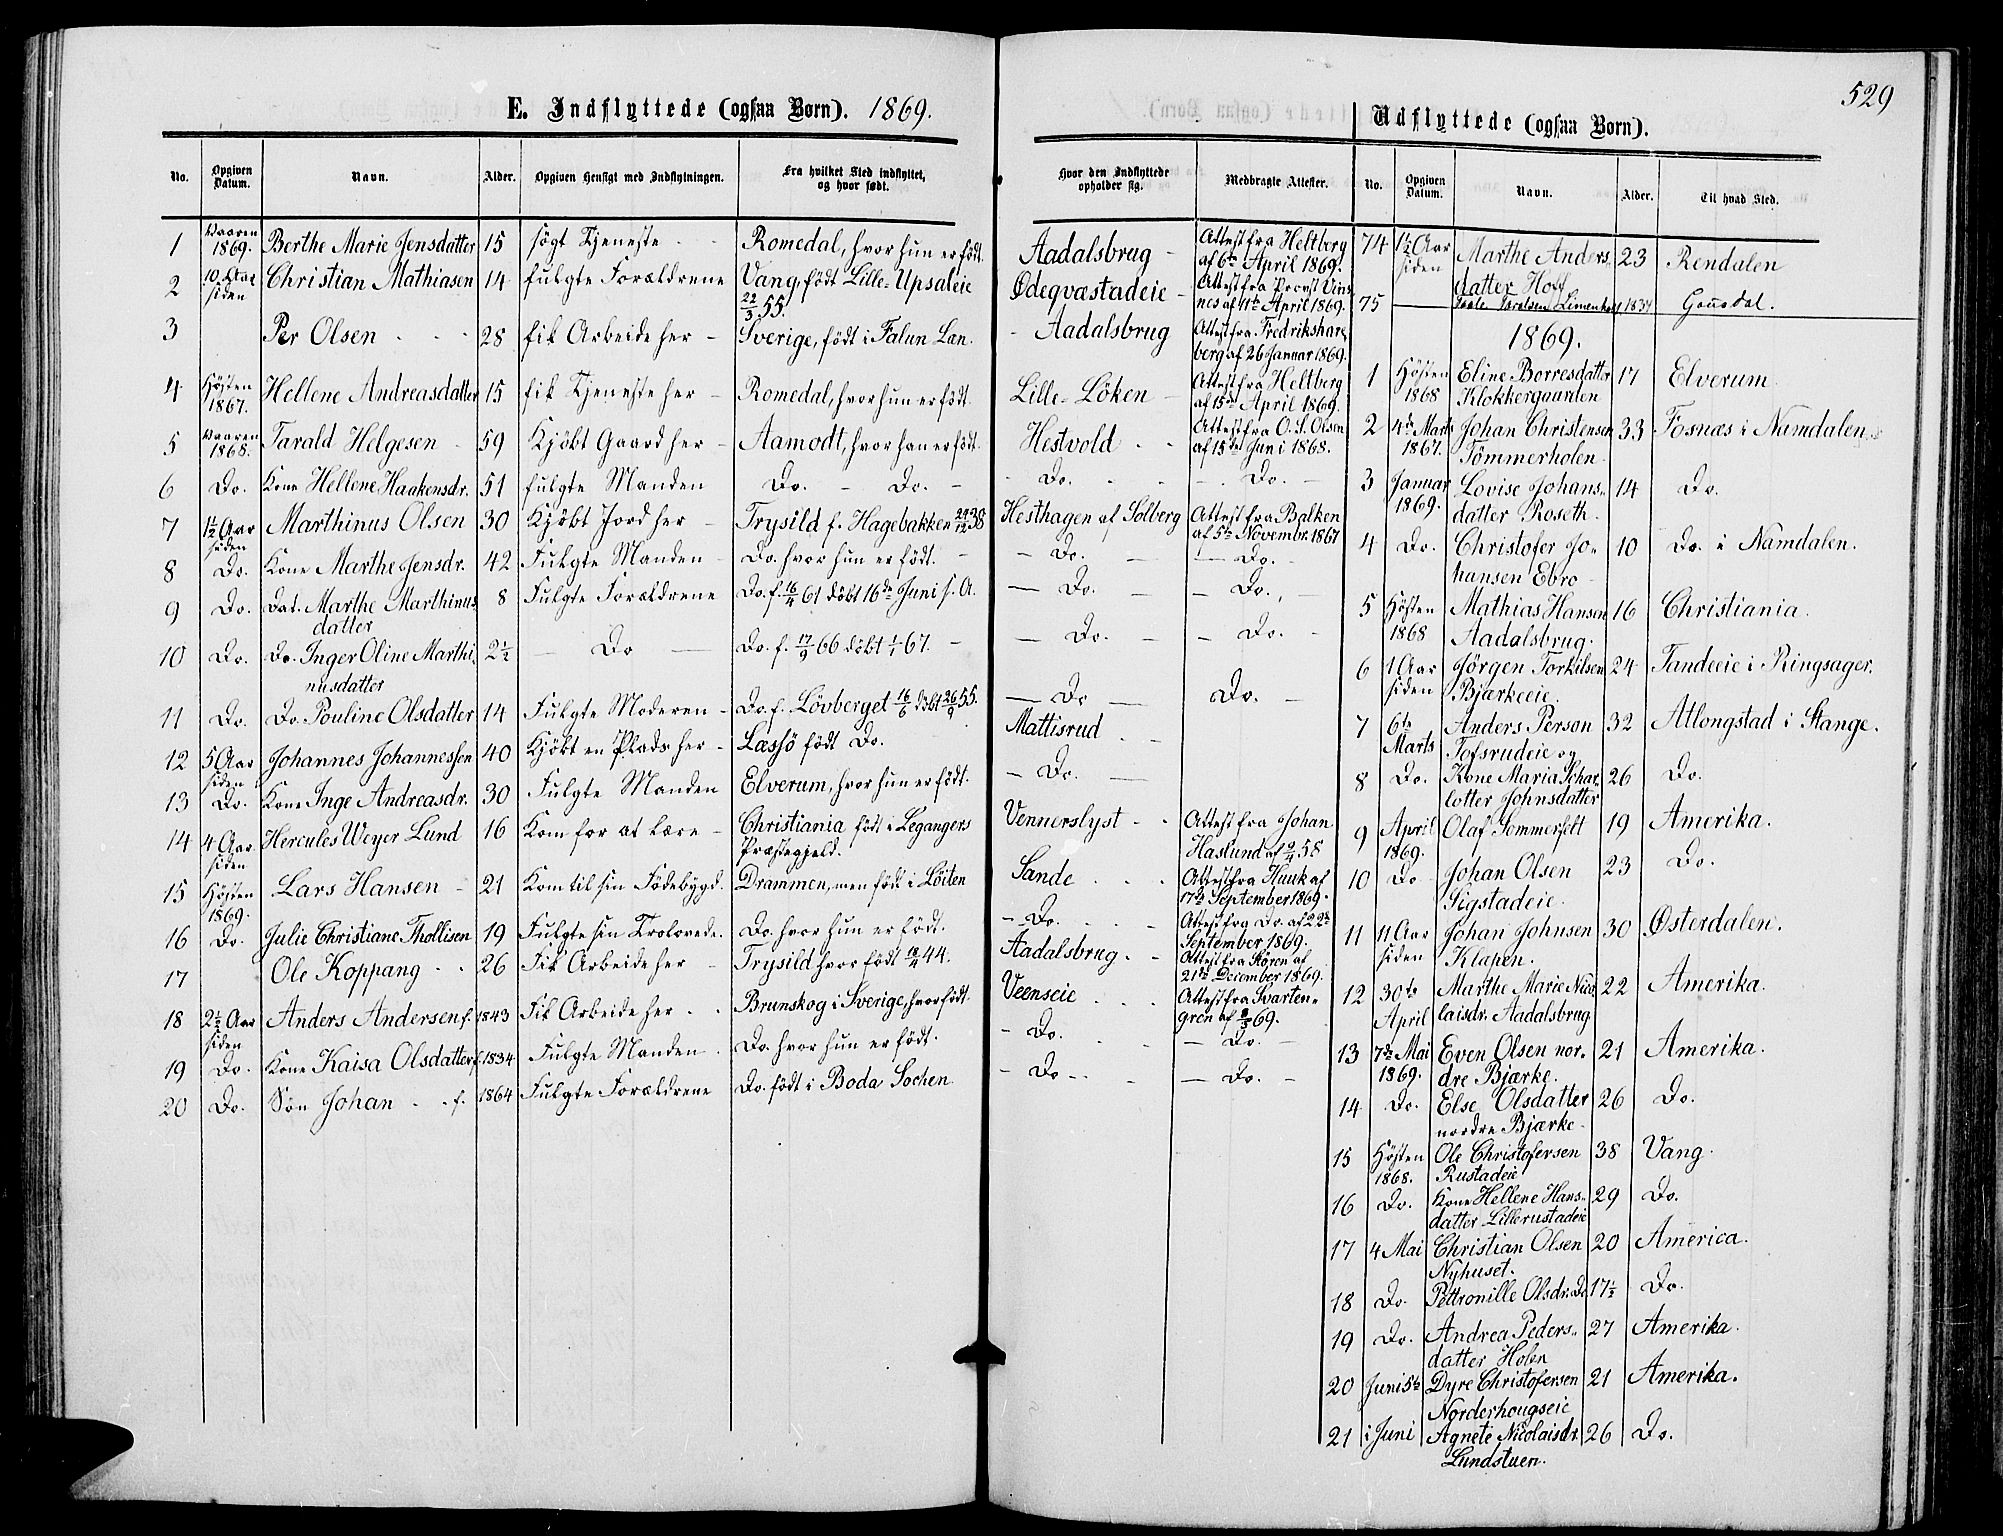 529
E. Indflyttede (ogsaa Børn). 1869.
No. Opgiven Datum. Navn. Alder. Opgiven Hensigt med Indflytningen. Fra hvilket Sted indflyttet, og hvor født. Hvor den Indflyttede opholder sig. Medbragte Attester.
1 Vaaren 1869. Berthe Marie Jensdatter 15 søgt Tjeneste Romedal, hvor hun er født. Aadalsbrug Attest fra Heltberg af 6te April 1869.
2 10 Aar siden Christian Mathiasen 14 fulgte Forældrene Vang, født Lille-Upsaleie 22/3 55. Ødeqvæstadeie Attest fra Provst af 11te April 1869.
3 Per Olsen 28 fik Arbeide her Sverige, født i Falun Læn. Aadalsbrug Attest fra af 26 Januar 1869.
4 Høsten 1867. Hellene Andreasdatter 15 fik Tjeneste her Romedal, hvor hun er født. Lille-Löken Attest fra Heltberg af 15de April 1869.
5 Vaaren 1868. Tarald Helgesen 59 Kjöbt Gaard her Aamodt, hvor han er født. Hestvold Attest fra O. S. Olsen af 15de Juni 1868.
6 Do. Kone Hellene Haakensdr. 51 fulgte Manden Do. Do. Do. Do.
7 1½ Aar siden Marthinus Olsen 30 Kjöbt Jord her Trysild f. Hagebakken 38 Hesthagen af Solberg Attest fra Balken af 5te Novembr. 1867
8 Do. Kone Marthe Jensdr. 42 Fulgte Manden Do. hvor hun er født. Do. Do.
9 Do. Dat. Marthe Marthinusdatter 8 Fulgte Forældrene Do. f. 16/4 61 döbt 16de Juni s. A. Do. Do.
10 Do. Do. Inger Oline Marthinusdatter 2½ Do Do. f. 17/9 66 döbt 1/1 67. Do. Do.
11 Do. Do. Pouline Olsdatter 14 Fulgte Moderen Do. f. Lövberget 16/6 döbt 26/9 55. Do Do.
12 5 Aar siden Johannes Johannessen 40 Kjöbt en Plads her Læssö født Do. Mattisrud
13 Do. Kone Inge Andreasdr. 30 Fulgte Manden Elverum, hvor hun er født. Do.
14 4 Aar siden Hercules Weyer Lund 16 Kom for at lære Christiania født i Leganger Præstegjeld. Vennerslyst Attest fra Johan Haslund af 2/4 58
15 Høsten 1869. Lars Hansen 21 Kom til sin Fødebygd. Drammen, men født i Löiten Sande Attest fra Huuk af 17de September 1869
16 Do. Julie Christiane Thollisen 19 Fulgte sin Trolovede. Do. hvor hun er født. Do. Attest fra Do. af 22de September 1869.
17 Ole Koppang 26 Fik Arbeide her Trysild hvor født 44. Aadalsbrug Attest fra af 21de December 1869.
18 2½ Aar siden Anders Andersen f. 1843 Fik Arbeide her Brunskog i Sverige, hvor født. Veenseie Attest fra Svartengren af 8/3 69.
19 Do. Kone Kaisa Olsdatter f. 1834 Fulgte Manden Do. hvor hun er født. Do. Do.
20 Do. Sön Johan f. 1864 Fulgte Forældrene Do. født i Boda Sochen. Do. Do.
Udflyttede (ogsaa Børn).
No. Opgiven Datum. Navn. Alder. Til hvad Sted.
74 1½ Aar siden Marthe Andersdatter Hoff 23 Rendalen
75 1837 Gausdal.
1869.
1 Høsten 1868 Eline Borresdatter Klokkergaarden 17 Elverum
2 4de Marts 1867. Johan Christensen Tömmerholen 33 Fosnæs i Namdalen.
3 Januar 1869. Lovise Johansdatter Roseth 14 Do.
4 Do. Christofer Johansen Ebro 10 Do. i Namdalen.
5 Høsten 1868 Mathias Hansen Aadalsbrug. 16 Christiania.
6 1 Aar siden Jørgen Torkilsen Bjærkeeie. 24 Tandeeie i Ringsager.
7 6te Marts Anders Person Tofsrudeie og 32 Atlongstad i Stange.
8 Do. Kone Maria Scharlotter Johnsdatter 26 Do.
9 April 1869. Olaf Sommerfelt 19 Amerika.
10 Do Johan Olsen Sigstadeie. 23 Do.
11 11 Aar siden Johan Johnsen Klapen. 30 Østerdalen.
12 30te April Marthe Marie Nicolaisdr. Aadalsbrug 22 Amerika.
13 7de Mai 1869. Even Olsen nordre Bjærke. 21 Amerika.
14 Do. Else Olsdatter nordre Bjærke 26 Do.
15 Høsten 1868. Ole Christofersen Rustadeie 38 Vang.
16 Do. Kone Hellene Hansdatter Lillerustadeie 29 Do.
17 4 Mai Christian Olsen Nyhuset. 20 America.
18 Do. Pettronille Olsdr. Do 17½ Do.
19 Do. Andrea Pedersdatter Holen 27 Amerika.
20 Juni 5te Dyre Christofersen Norderhougseie 21 Amerika.
21 i Juni Agnete Nicolaisdr. Lundstuen. 26 Do.